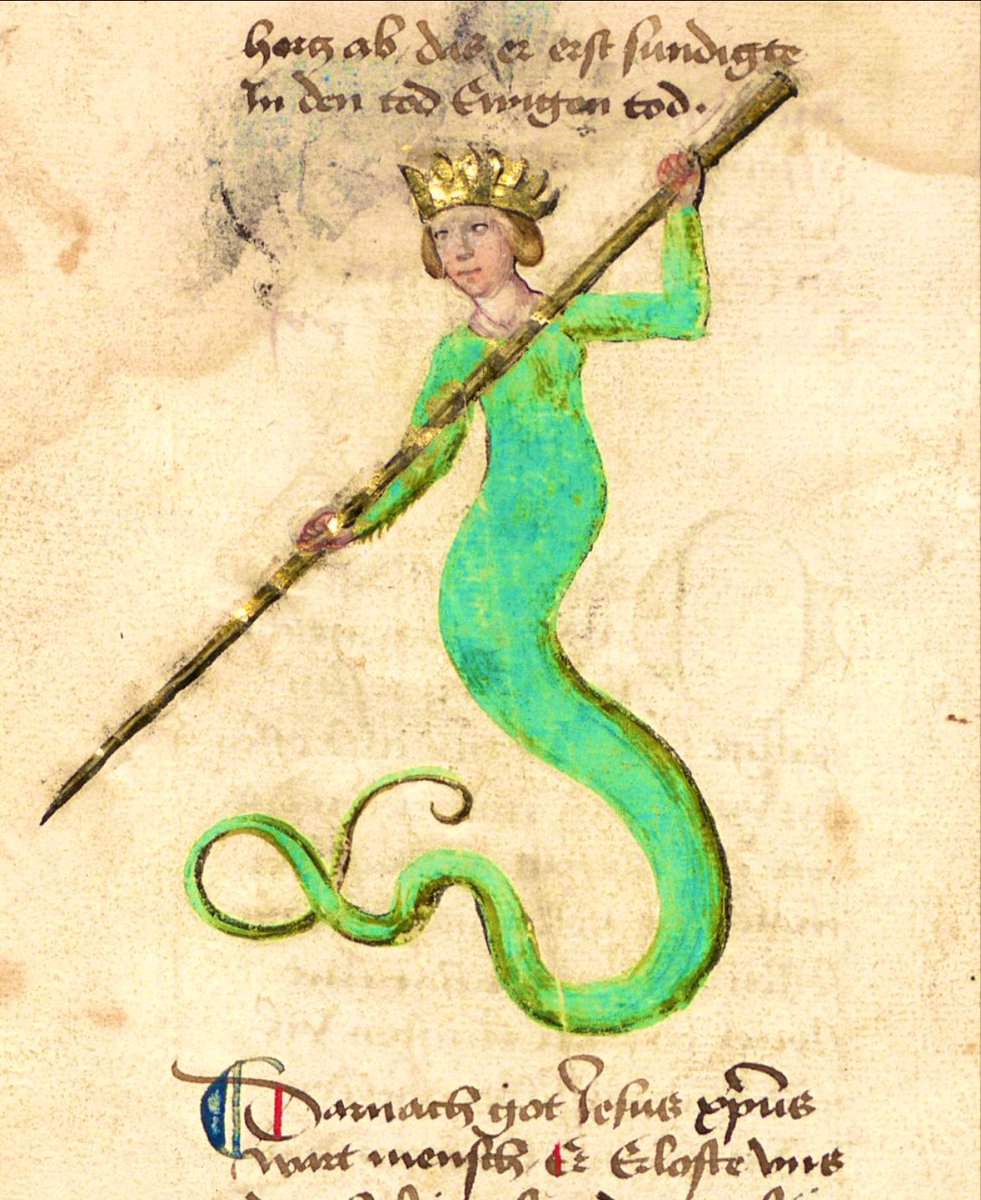 hertz ab das er erst sundigte
In den tod Ewigen tod.
Darnach got Jesus xp̄us
wart mensch Er Erloste vns